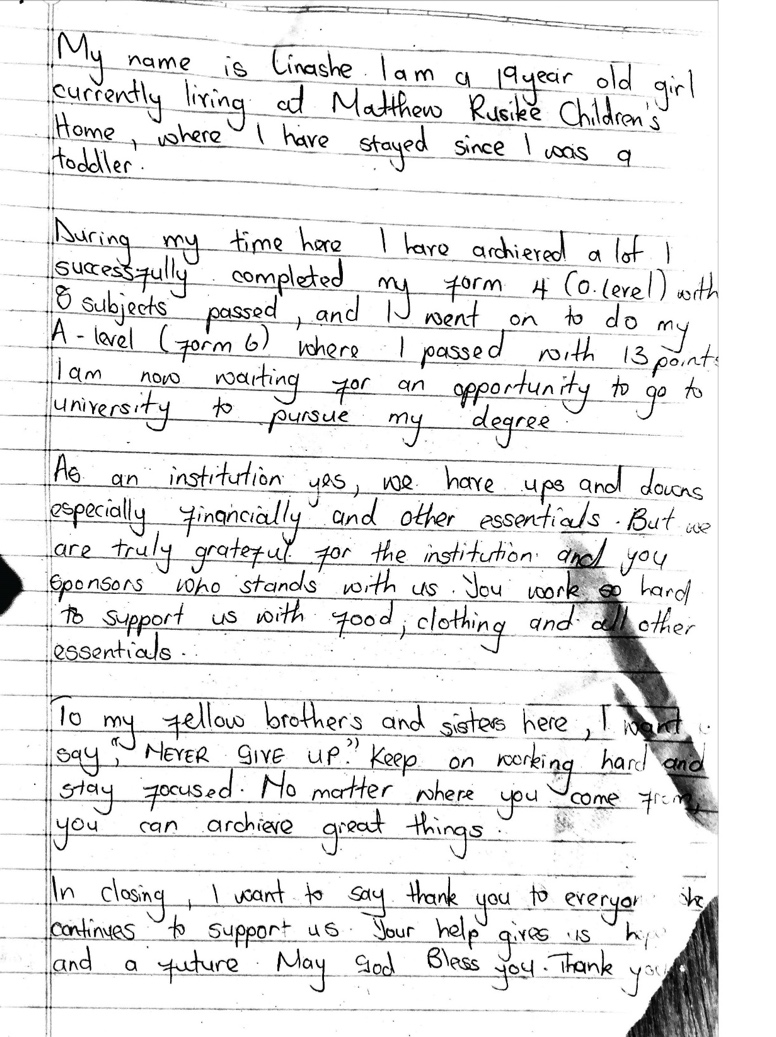 My name is Linashe. I am a 19 year old girl
currently living at Matthew Rusike Children's
Home, where I have stayed since I was a
toddler.
During my time here I have archieved a lot I
successfully completed my form 4 (O.level) with
8 subjects passed, and I went on to do my
A-level (form 6) where I passed with 13 points
I am now waiting for an opportunity to go to
university to pursue my degree.
As an institution yes, we have ups and downs
especially financially and other essentials. But we
are truly grateful for the institution and you
sponsors who stands with us. You work so hard
to support us with food, clothing and all other
essentials.
To my fellow brothers and sisters here, I want
say, "NEVER GIVE UP." Keep on working hard and
stay focused. No matter where you come from,
you can archieve great things.
In closing, I want to say thank you to
continues to support us. Your help gives us
and a future. May God Bless you. Thank you